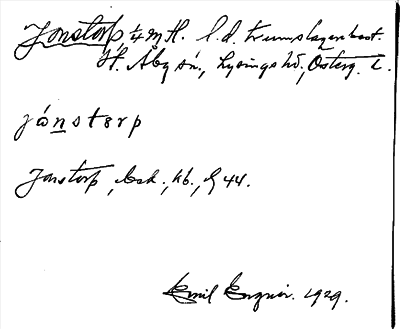 Jonstorp ¼ m H. l.d. trumslagarbost.
St. Åby sn., Lysings hd, Österg. l.
jónstorp
Jonstorp, Esk., kb., G 44.
Emil 1929.